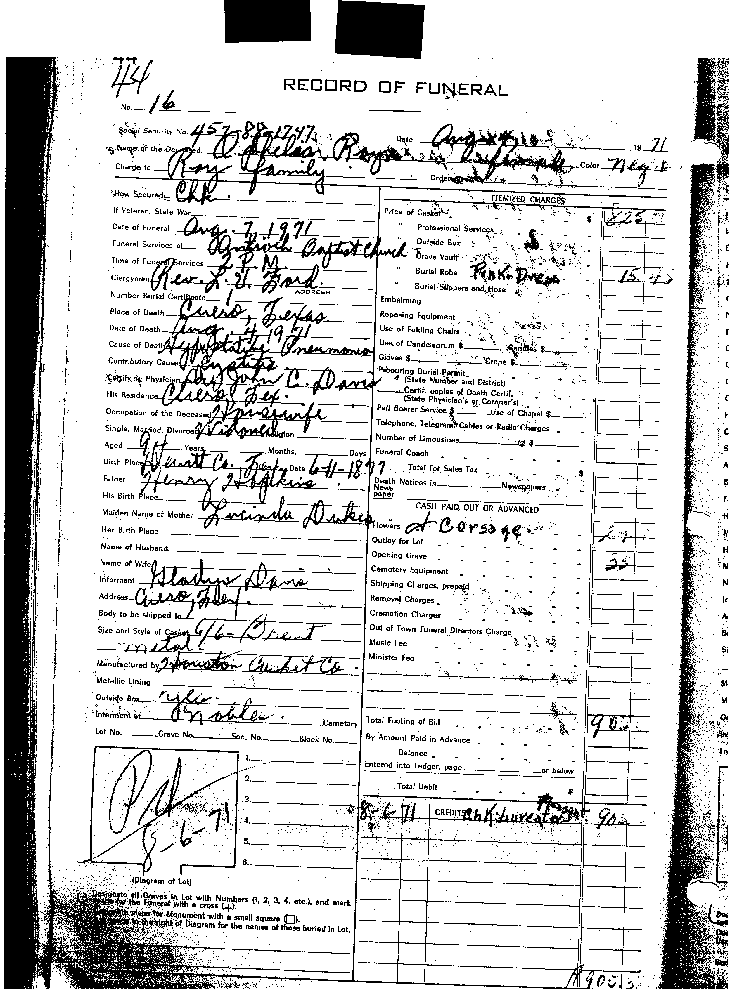 44
RECORD OF FUNERAL
No. 16
Social Security No. 457-88-1747
Name of the Deceased Date Aug 1971
Charge to Roy family Color Neg
How Secured Chk.
If Veteran, State War
Date of Funeral Aug. 7, 1971
Funeral Services at Antioch Baptist Church
Time of Funeral Services 2 P.M.
Clergyman Rev. Ford
ADDRESS
Number Burial Certificate
Place of Death Cuero, Texas
Date of Death Aug. 4, 1971
Cause of Death Hypostatic Pneumonia
Contributory Cause Cystitis
Certifying Physician Dr. John C. Davis
His Residence Cuero, Tex.
Occupation of the Deceased Housewife
Single, Married, Divorced Widowed Religion
Aged 94 Years Months. Days
Birth Place Dewitt Co. Tex. Date 6-11-1877
Father Henry Hopkins
His Birth Place
Maiden Name of Mother Lucinda
Her Birth Place
Name of Husband
Name of Wife
Informant Gladys Davis
Address Cuero, Tex.
Body to be shipped to
Size and Style of Casket 6/6- Brent
metal
Manufactured by Houston Casket Co.
Metallic Lining
Outside Box yes
Interment at Nobles Cemetery
Lot No. Grave No. Sec. No. Block No.
1.
2.
3.
4.
5.
6.
Pd
8-6-71
(Diagram of Lot)
Designate all Graves in Lot with Numbers (1, 2, 3, 4, etc.), and mark
place for the Funeral with a cross (+).
place for Monument with a small square (□).
to the right of Diagram for the names of those buried in Lot.
ITEMIZED CHARGES
Price of Casket $ 825
" Professional Services
" Outside Box
" Grave Vault
" Burial Robe Pink Dress 15
" Burial Slippers and Hose
Embalming
Reposing Equipment
Use of Folding Chairs
Use of Candelabrum $ Candles $
Gloves $ Crepe $
Procuring Burial Permit
(State Number and District)
Certif. copies of Death Certif.
(State Physician's or Coroner's)
Pall Bearer Service $ Use of Chapel $
Telephone, Telegram, Cables or Radio Charges
Number of Limousines @ $
Funeral Coach
Total for Sales Tax
Death Notices in Newspapers
News
paper
CASH PAID OUT OR ADVANCED
Flowers & Corsage
Outlay for Lot
Opening Grave 35
Cemetery Equipment
Shipping Charges, prepaid
Removal Charges
Cremation Charges
Out of Town Funeral Directors Charge
Music Fee
Minister Fee
Total Footing of Bill 90
By Amount Paid in Advance
Balance
Entered into Ledger, page or below
Total Debit $
8-6-71 CREDIT Chk 90